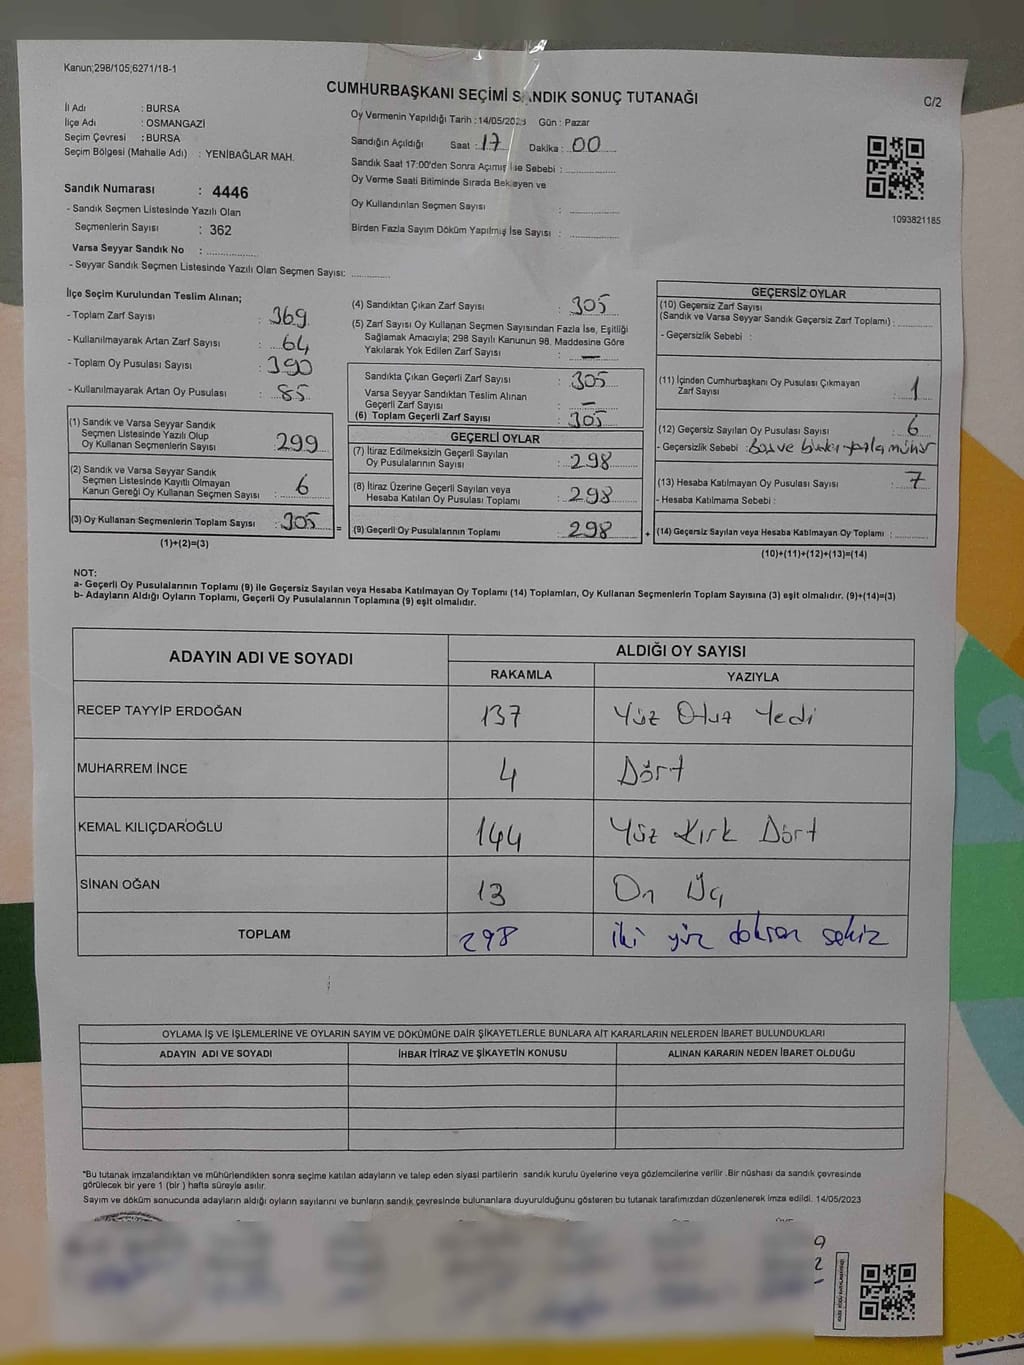 Kanun;298/105;6271/18-1
CUMHURBAŞKANI SEÇİMİ SANDIK SONUÇ TUTANAĞI
C/2
İl Adı : BURSA
İlçe Adı : OSMANGAZİ
Seçim Çevresi : BURSA
Seçim Bölgesi (Mahalle Adı) : YENİBAĞLAR MAH.
Sandık Numarası : 4446
- Sandık Seçmen Listesinde Yazılı Olan
Seçmenlerin Sayısı : 362
Varsa Seyyar Sandık No :
- Seyyar Sandık Seçmen Listesinde Yazılı Olan Seçmen Sayısı:
Oy Vermenin Yapıldığı Tarih : 14/05/2023 Gün : Pazar
Sandığın Açıldığı Saat : 17 Dakika : 00
Sandık Saat 17:00'den Sonra Açımış İse Sebebi :
Oy Verme Saati Bitiminde Sırada Bekleyen ve
Oy Kullandırılan Seçmen Sayısı :
Birden Fazla Sayım Döküm Yapılmış İse Sayısı :
1093821185
İlçe Seçim Kurulundan Teslim Alınan;
- Toplam Zarf Sayısı : 369
- Kullanılmayarak Artan Zarf Sayısı : 64
- Toplam Oy Pusulası Sayısı : 390
- Kullanılmayarak Artan Oy Pusulası : 85
(1) Sandık ve Varsa Seyyar Sandık
Seçmen Listesinde Yazılı Olup
Oy Kullanan Seçmenlerin Sayısı : 299
(2) Sandık ve Varsa Seyyar Sandık
Seçmen Listesinde Kayıtlı Olmayan
Kanun Gereği Oy Kullanan Seçmen Sayısı : 6
(3) Oy Kullanan Seçmenlerin Toplam Sayısı : 305 =
(1)+(2)=(3)
(4) Sandıktan Çıkan Zarf Sayısı : 305
(5) Zarf Sayısı Oy Kullanan Seçmen Sayısından Fazla İse, Eşitliği
Sağlamak Amacıyla; 298 Sayılı Kanunun 98. Maddesine Göre
Yakılarak Yok Edilen Zarf Sayısı : —
Sandıkta Çıkan Geçerli Zarf Sayısı : 305
Varsa Seyyar Sandıktan Teslim Alınan
Geçerli Zarf Sayısı : —
(6) Toplam Geçerli Zarf Sayısı : 305
GEÇERLİ OYLAR
(7) İtiraz Edilmeksizin Geçerli Sayılan
Oy Pusulalarının Sayısı : 298
(8) İtiraz Üzerine Geçerli Sayılan veya
Hesaba Katılan Oy Pusulası Toplamı : 298
(9) Geçerli Oy Pusulalarının Toplamı : 298 +
GEÇERSİZ OYLAR
(10) Geçersiz Zarf Sayısı
(Sandık ve Varsa Seyyar Sandık Geçersiz Zarf Toplamı) :
- Geçersizlik Sebebi :
(11) İçinden Cumhurbaşkanı Oy Pusulası Çıkmayan
Zarf Sayısı : 1
(12) Geçersiz Sayılan Oy Pusulası Sayısı : 6
- Geçersizlik Sebebi : Boş ve birden fazla mühür
(13) Hesaba Katılmayan Oy Pusulası Sayısı : 7
- Hesaba Katılmama Sebebi :
(14) Geçersiz Sayılan veya Hesaba Katılmayan Oy Toplamı :
(10)+(11)+(12)+(13)=(14)
NOT:
a- Geçerli Oy Pusulalarının Toplamı (9) ile Geçersiz Sayılan veya Hesaba Katılmayan Oy Toplamı (14) Toplamları, Oy Kullanan Seçmenlerin Toplam Sayısına (3) eşit olmalıdır. (9)+(14)=(3)
b- Adayların Aldığı Oyların Toplamı, Geçerli Oy Pusulalarının Toplamına (9) eşit olmalıdır.
ADAYIN ADI VE SOYADI
ALDIĞI OY SAYISI
RAKAMLA YAZIYLA
RECEP TAYYİP ERDOĞAN 137 Yüz Otuz Yedi
MUHARREM İNCE 4 Dört
KEMAL KILIÇDAROĞLU 144 Yüz Kırk Dört
SİNAN OĞAN 13 On Üç
TOPLAM 298 iki yüz doksan sekiz
OYLAMA İŞ VE İŞLEMLERİNE VE OYLARIN SAYIM VE DÖKÜMÜNE DAİR ŞİKAYETLERLE BUNLARA AİT KARARLARIN NELERDEN İBARET BULUNDUKLARI
ADAYIN ADI VE SOYADI İHBAR İTİRAZ VE ŞİKAYETİN KONUSU ALINAN KARARIN NEDEN İBARET OLDUĞU
*Bu tutanak imzalandıktan ve mühürlendikten sonra seçime katılan adayların ve talep eden siyasi partilerin sandık kurulu üyelerine veya gözlemcilerine verilir .Bir nüshası da sandık çevresinde
görülecek bir yere 1 (bir ) hafta süreyle asılır.
Sayım ve döküm sonucunda adayların aldığı oyların sayılarını ve bunların sandık çevresinde bulunanlara duyurulduğunu gösteren bu tutanak tarafımızdan düzenlenerek imza edildi. 14/05/2023